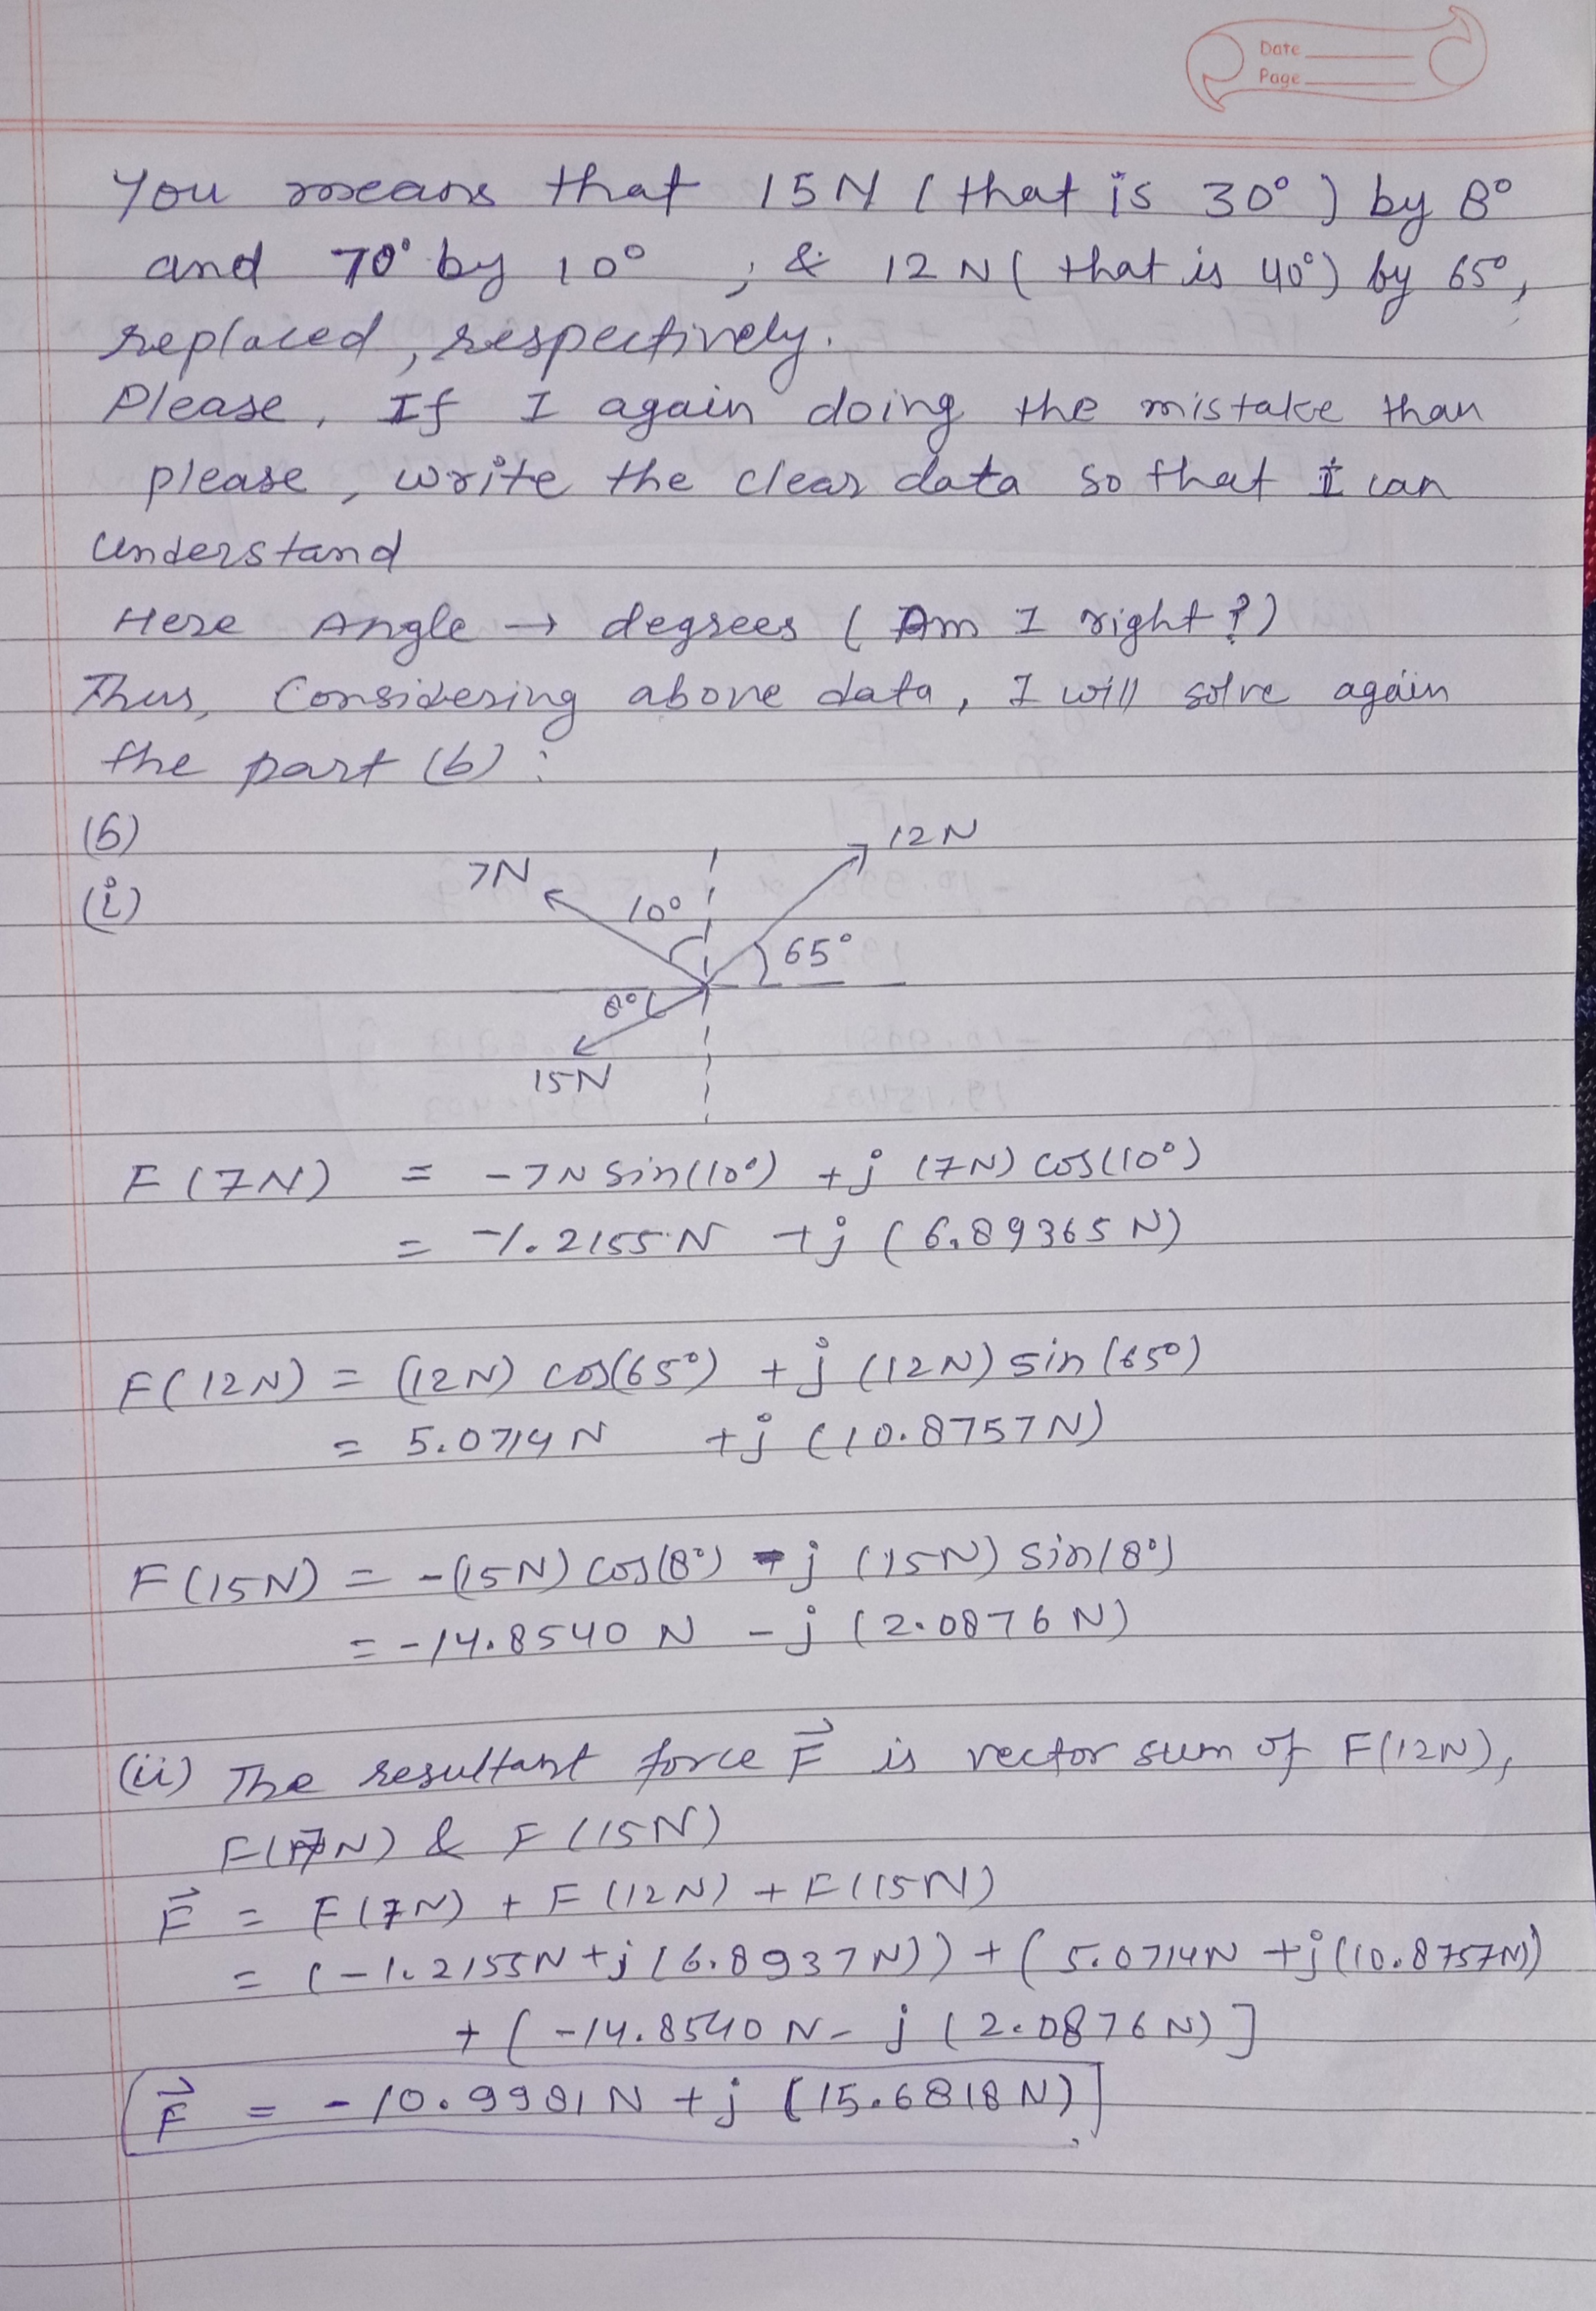 Date
Page
You means that 15N (that is 30°) by 8°
and 70° by 10° , & 12N (that is 40°) by 65°,
replaced, respectively.
Please, If I again doing the mistake than
please, write the clear data so that I can
understand
Here Angle → degrees (Am I right?)
Thus, Considering above data, I will solve again
the part (b):
(b)
12N
7N
(i)
10°
65°
8°
15N
F(7N) = -7N sin(10°) +j (7N) cos(10°)
= -1.2155N +j (6.89365N)
F(12N) = (12N) cos(65°) +j (12N) sin(65°)
= 5.0714N +j (10.8757N)
F(15N) = -(15N) cos(8°) -j (15N) sin(8°)
= -14.8540 N -j (2.0876 N)
(ii) The resultant force F⃗ is vector sum of F(12N),
F(7N) & F(15N)
F⃗ = F(7N) + F(12N) + F(15N)
= (-1.2155N +j (6.8937N)) + (5.0714N +j(10.8757N))
+ (-14.8540 N - j (2.0876N)]
F⃗ = -10.9981N +j (15.6818N)